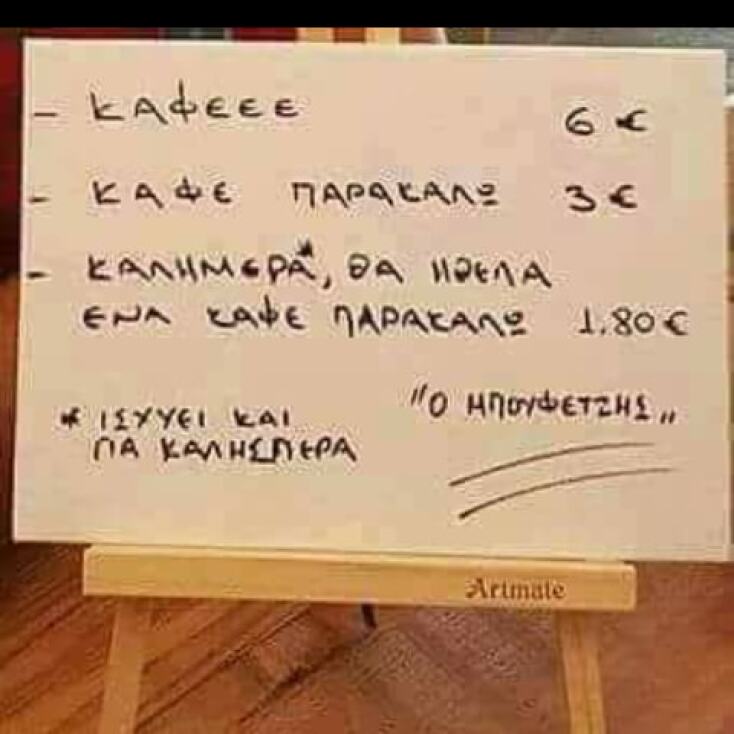 - ΚΑΦΕΕΕ 6 €
- ΚΑΦΕ ΠΑΡΑΚΑΛΩ 3 €
- ΚΑΛΗΜΕΡΑ*, ΘΑ ΗΘΕΛΑ
ΕΝΑ ΚΑΦΕ ΠΑΡΑΚΑΛΩ 1.80 €
* ΙΣΧΥΕΙ ΚΑΙ
ΓΙΑ ΚΑΛΗΣΠΕΡΑ
"Ο ΜΠΟΥΦΕΤΖΗΣ„
Artmate